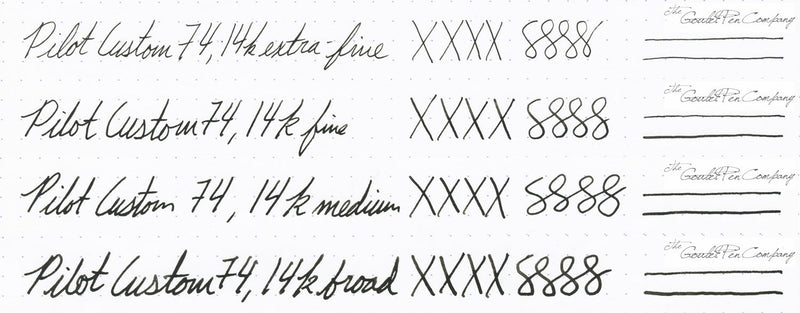 Pilot Custom 74, 14k extra-fine XXXX 8888 The Goulet Pen Company
Pilot Custom 74, 14k fine XXXX 8888 The Goulet Pen Company
Pilot Custom 74, 14k medium XXXX 8888 The Goulet Pen Company
Pilot Custom 74, 14k broad XXXX 8888 The Goulet Pen Company